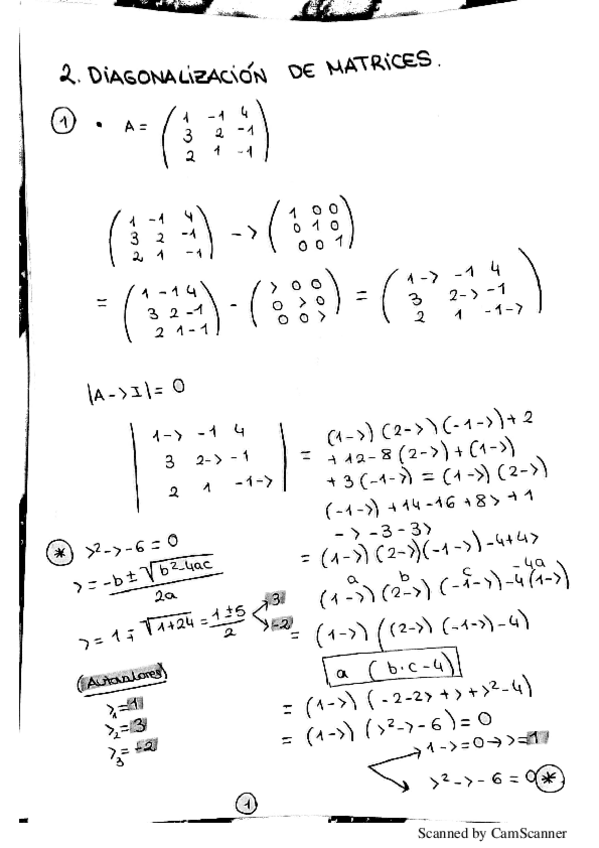 2. DIAGONALIZACIÓN DE MATRICES.
① • A = ( 1 -1 4
3 2 -1
2 1 -1 )
( 1 -1 4
3 2 -1
2 1 -1 ) -λ ( 1 0 0
0 1 0
0 0 1 )
= ( 1 -1 4
3 2 -1
2 1 -1 ) - ( λ 0 0
0 λ 0
0 0 λ ) = ( 1-λ -1 4
3 2-λ -1
2 1 -1-λ )
|A-λI| = 0
| 1-λ -1 4
3 2-λ -1
2 1 -1-λ | = (1-λ)(2-λ)(-1-λ)+2
+12-8(2-λ)+(1-λ)
+3(-1-λ) = (1-λ)(2-λ)
(-1-λ)+14-16+8λ+1
-λ-3-3λ
= (1-λ)(2-λ)(-1-λ)-4+4λ
a b c -4a
(1-λ)(2-λ)(-1-λ)-4(1-λ)
= (1-λ)((2-λ)(-1-λ)-4)
a (b·c-4)
= (1-λ)(-2-2λ+λ+λ²-4)
= (1-λ)(λ²-λ-6) = 0
1-λ=0→λ=1
λ²-λ-6=0 *
* λ²-λ-6=0
λ = -b±√b²-4ac
2a
λ = 1∓√1+24 = 1±5
2
3
-2
(Autovalores)
λ₁=1
λ₂=3
λ₃=-2
1
Scanned by CamScanner